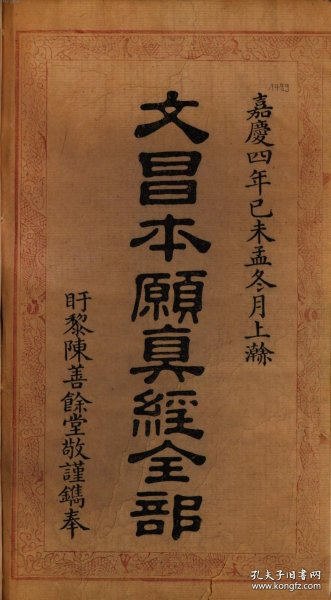 嘉慶四年己未孟冬月上澣
文昌本願真經全部
盱黎陳善餘堂敬謹鐫奉
孔夫子旧书网
kongfz.com